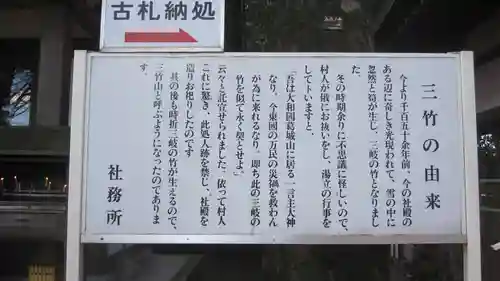 古札納処
三竹の由来
今より千百五十余年前、今の社殿の
ある辺に奇しき光現われて、雪の中に
忽然と筍が生し、三岐の竹となりまし
た。
冬の時期余りに不思議に怪しいので、
村人が俄にお祓いをし、湯立の行事を
して占いますと、
「吾は大和国葛城山に居る一言主大神
なり、今東国の万民の災禍を救わん
が為に来れるなり、即ち此の三岐の
竹を似て永く璽とせよ。」
云々と託宣せられました。依って村人
これに驚き、此処人跡を禁し、社殿を
造りお祀りしたのです
其の後も時折三岐の竹が生えるので、
三竹山と呼ぶようになったのでありま
す。
社務所